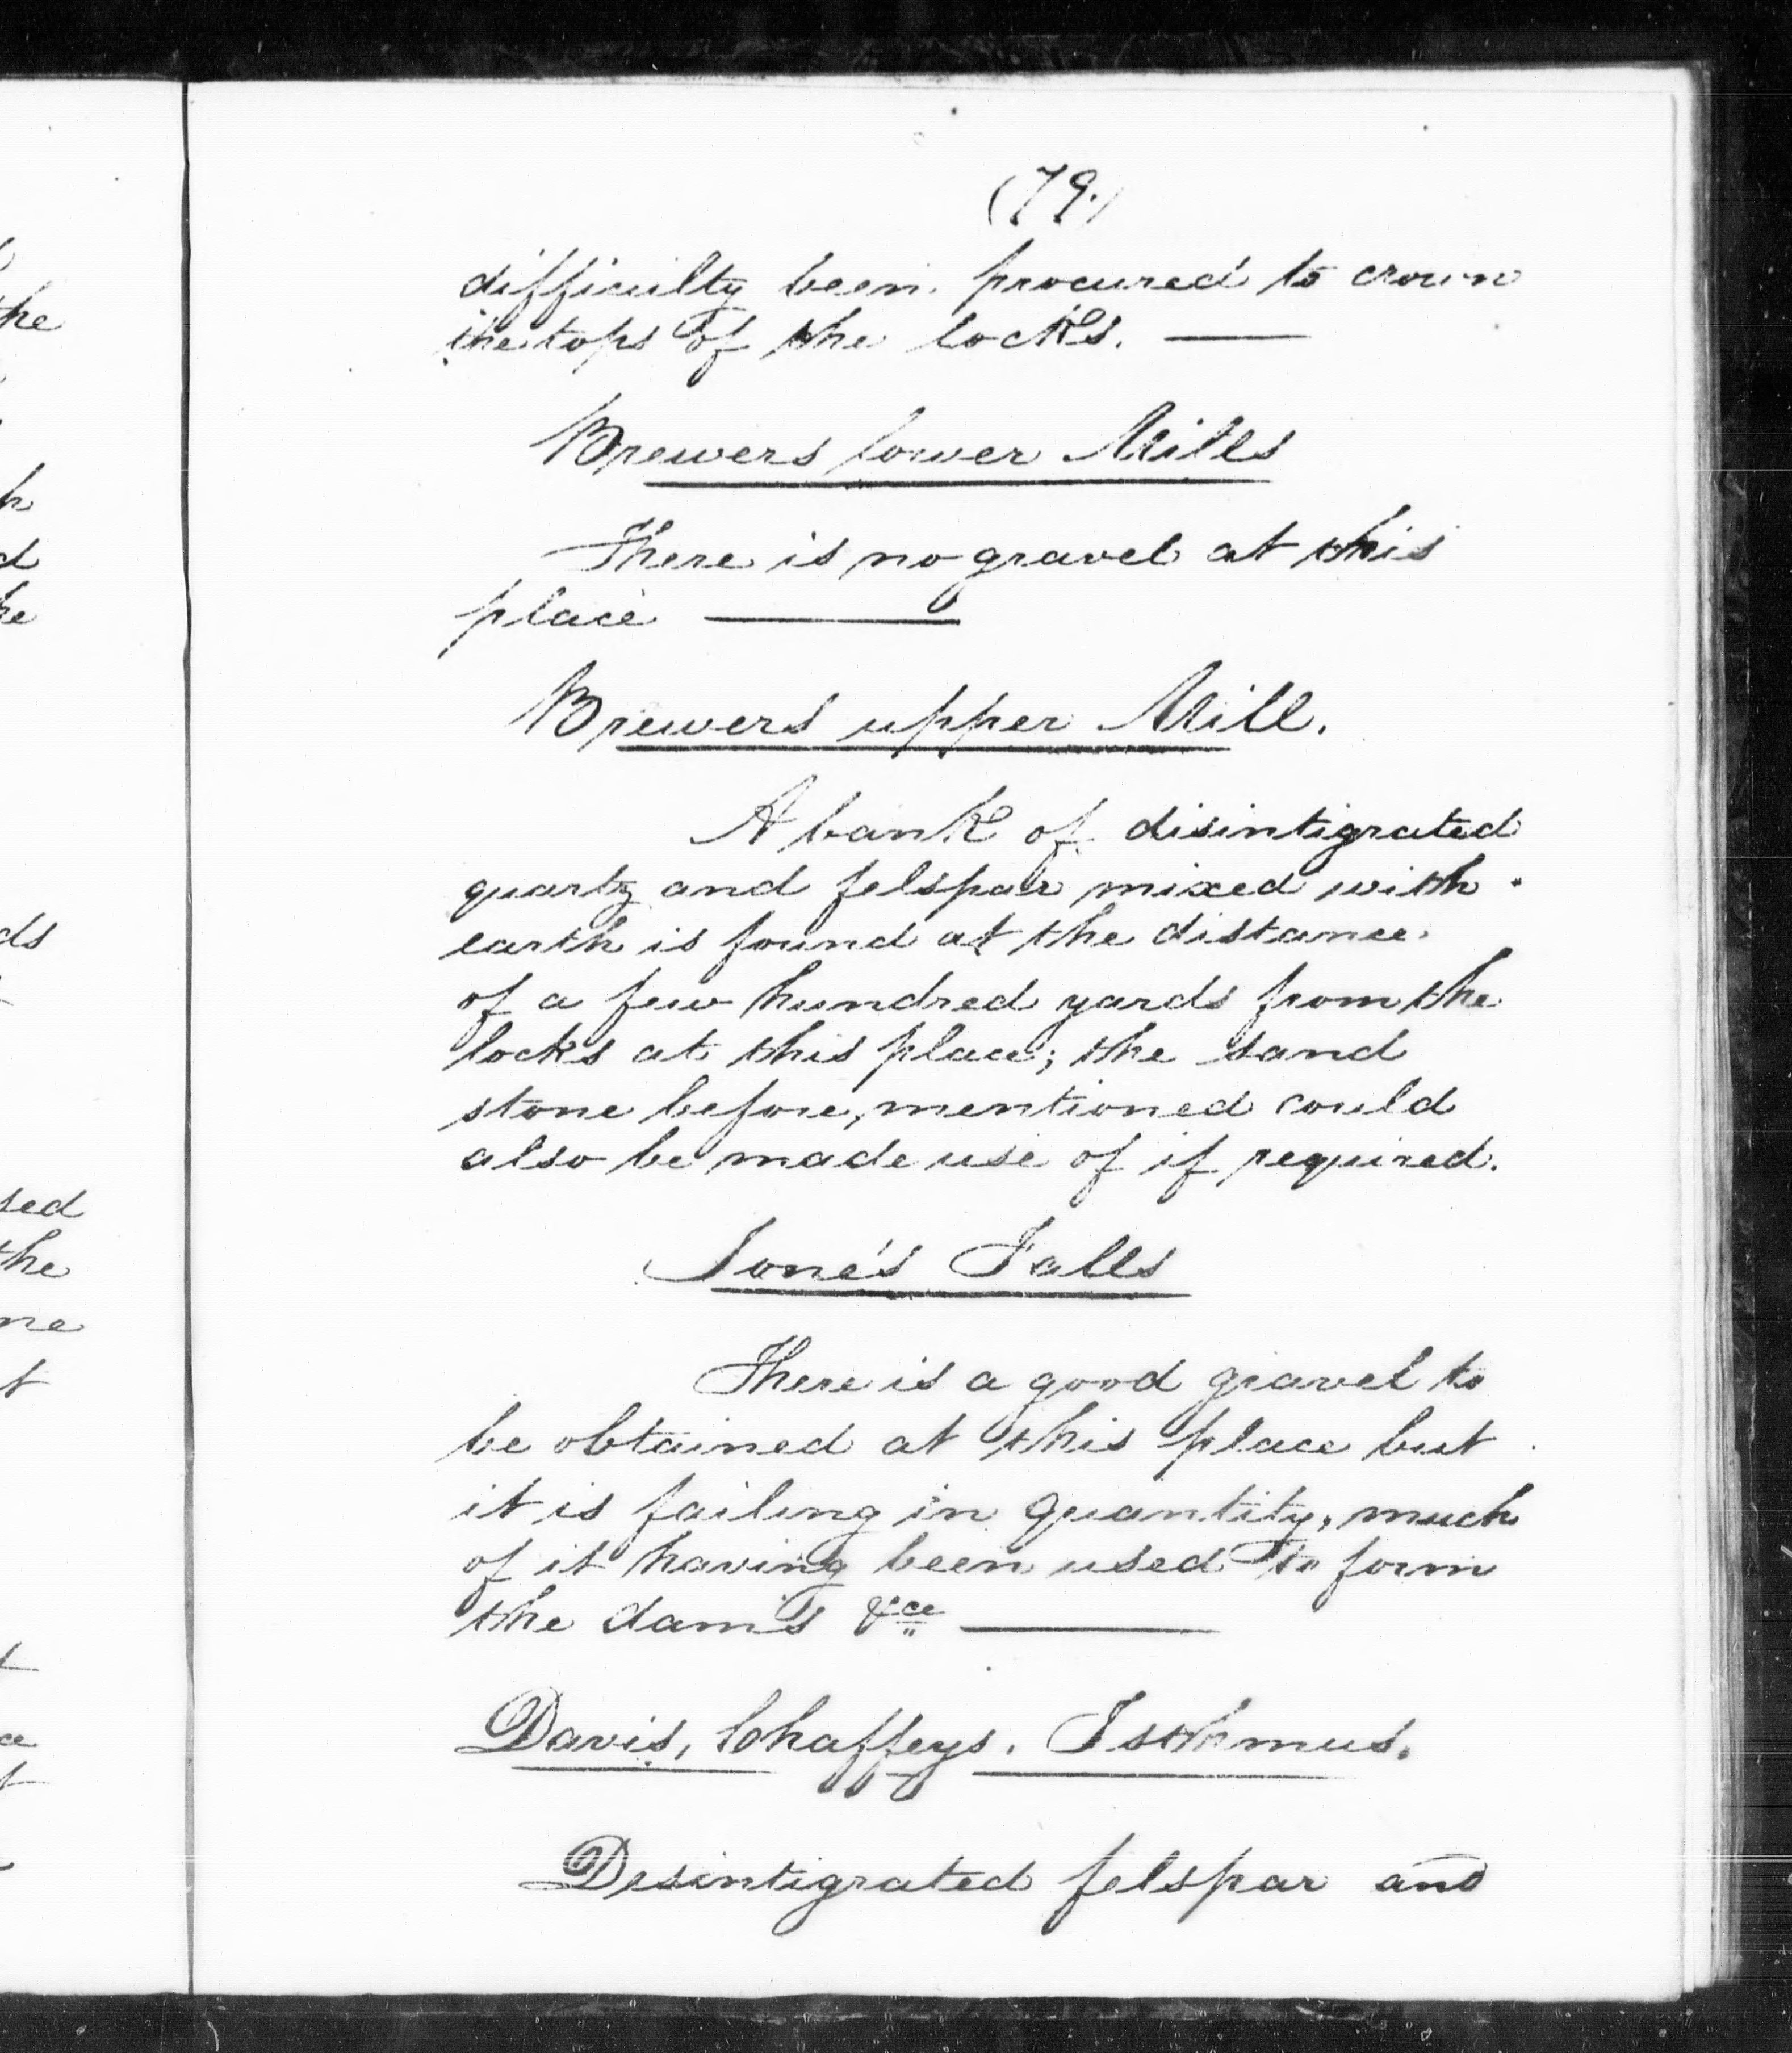 (79.)
difficulty been procured to crown
the tops of the locks. —
Brewers lower Mills
There is no gravel at this
place —
Brewers upper Mill.
A bank of disintigrated
quartz and felspar mixed with
earth is found at the distance
of a few hundred yards from the
locks at this place; the sand
stone before, mentioned could
also be made use of if required.
Jone's Falls
There is a good gravel to
be obtained at this place but
it is failing in quantity, much
of it having been used to form
the dams &ce —
Davis, Chaffeys. Isthmus.
Desintigrated felspar and
he
h
d
he
ds
sed
the
ne
t